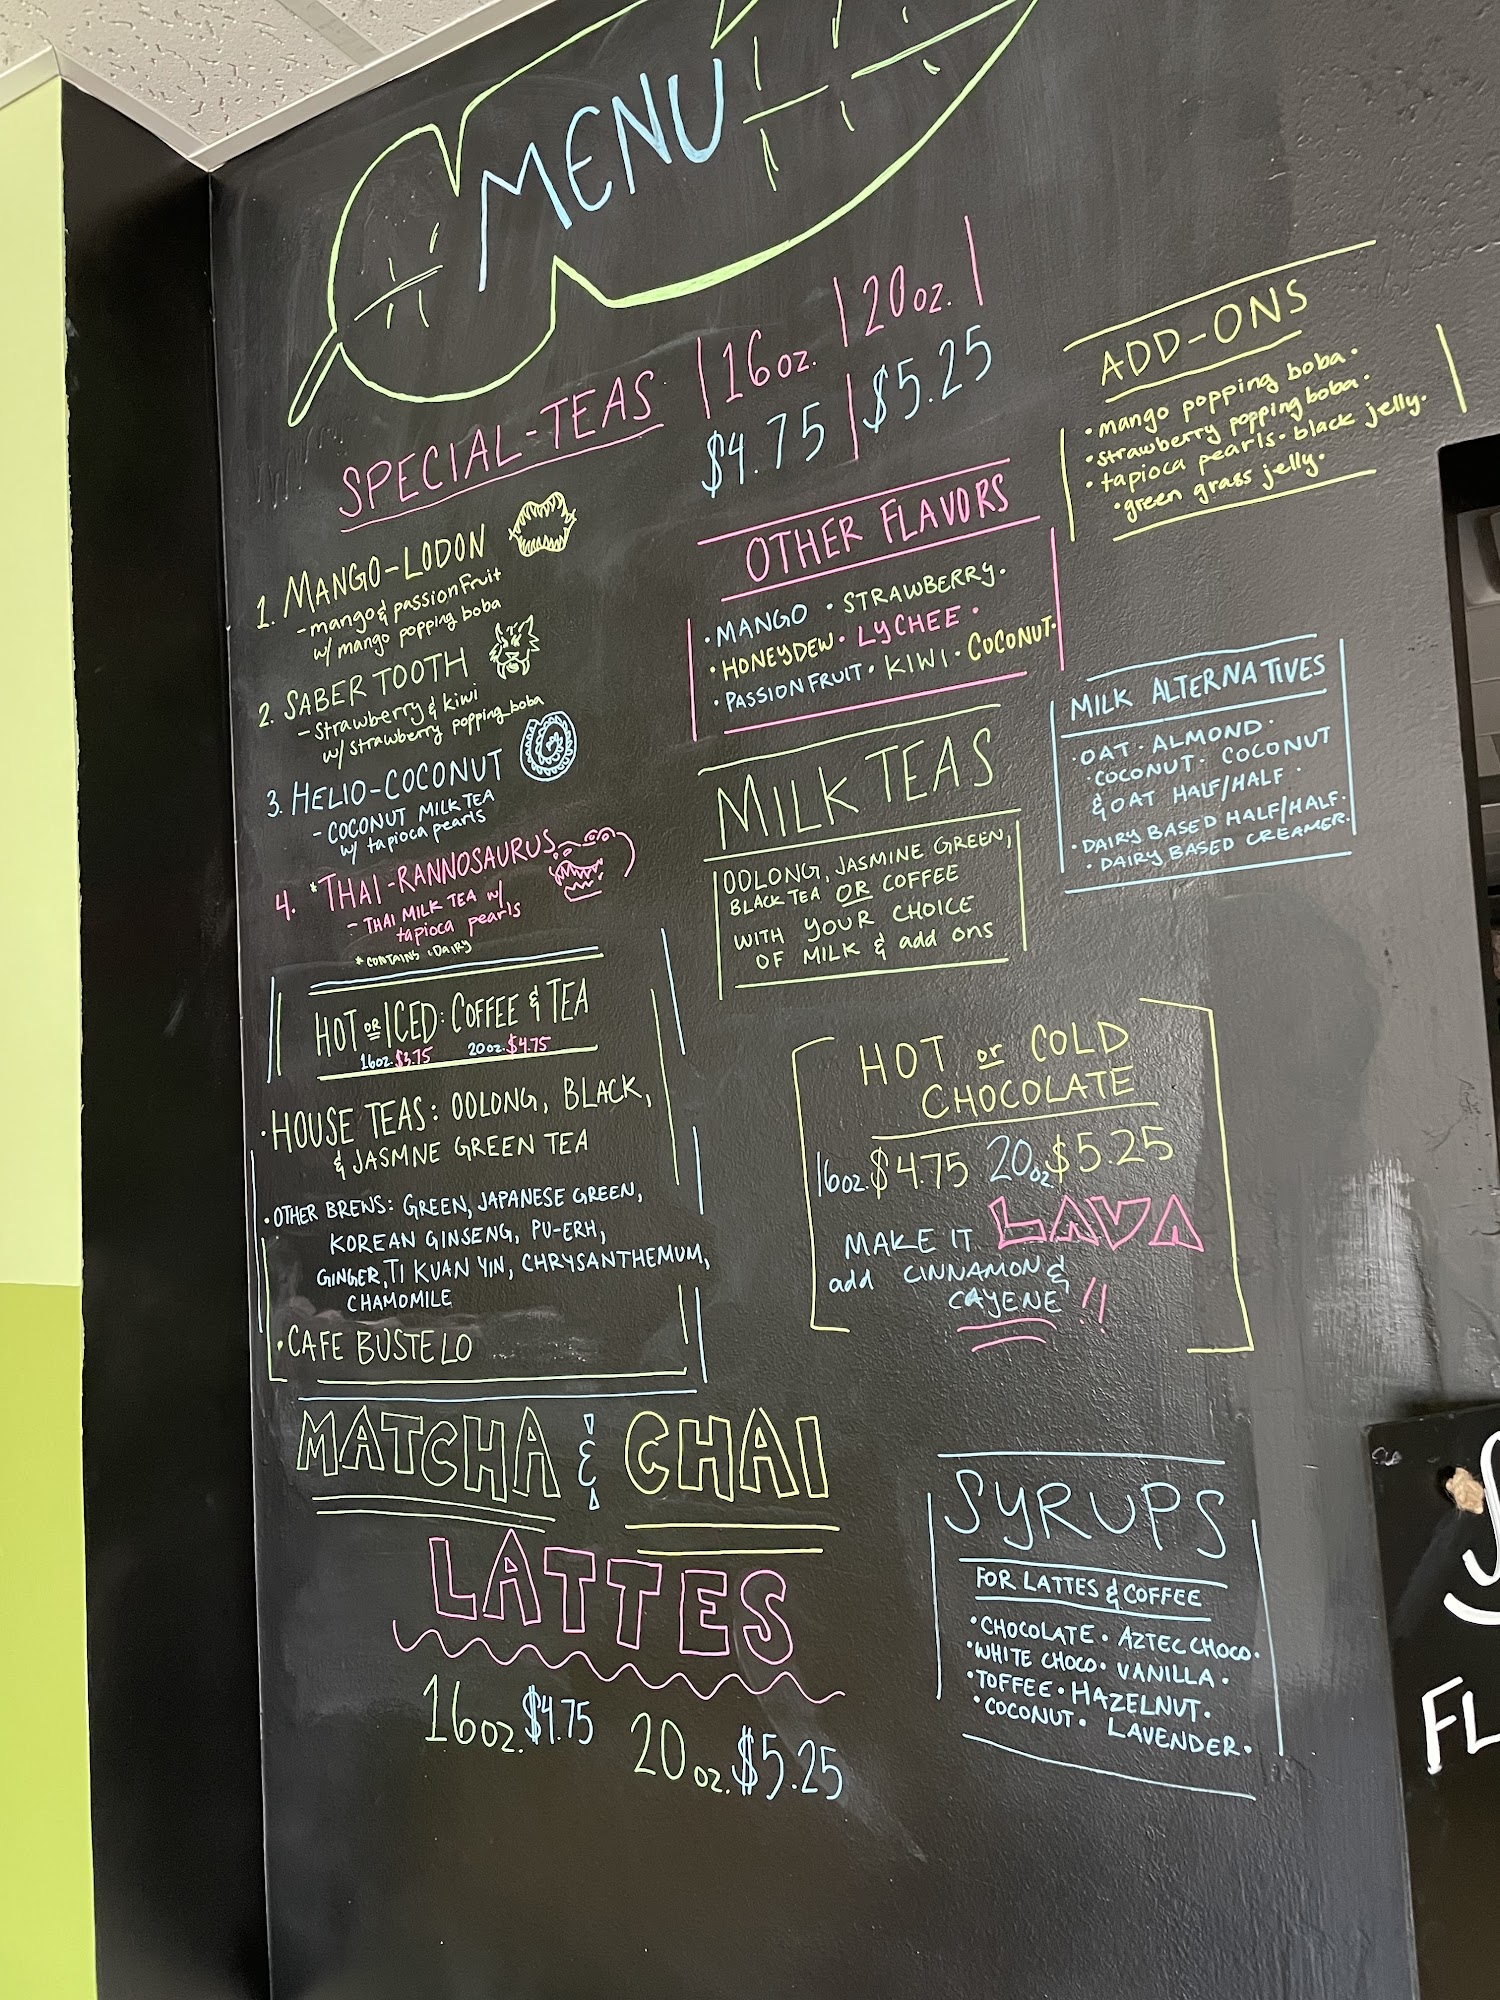 MENU
SPECIAL-TEAS | 16oz. | 20oz. |
$4.75 | $5.25
1. MANGO-LODON
- mango & passionfruit
w/ mango popping boba
2. SABER TOOTH
- strawberry & kiwi
w/ strawberry popping boba
3. HELIO-COCONUT
- COCONUT MILK TEA
w/ tapioca pearls
4. *THAI-RANNOSAURUS
- THAI MILK TEA w/
tapioca pearls
* CONTAINS DAIRY
ADD-ONS
• mango popping boba •
• strawberry popping boba •
• tapioca pearls • black jelly •
• green grass jelly •
OTHER FLAVORS
• MANGO • STRAWBERRY •
• HONEYDEW • LYCHEE •
• PASSIONFRUIT • KIWI • COCONUT •
MILK ALTERNATIVES
• OAT • ALMOND •
• COCONUT • COCONUT
& OAT HALF/HALF •
• DAIRY BASED HALF/HALF •
• DAIRY BASED CREAMER •
MILK TEAS
OOLONG, JASMINE GREEN,
BLACK TEA OR COFFEE
WITH YOUR CHOICE
OF MILK & add ons
HOT OR ICED: COFFEE & TEA
16oz. $3.75 20oz. $4.75
• HOUSE TEAS: OOLONG, BLACK,
& JASMNE GREEN TEA
• OTHER BREWS: GREEN, JAPANESE GREEN,
KOREAN GINSENG, PU-ERH,
GINGER, TI KUAN YIN, CHRYSANTHEMUM,
CHAMOMILE
• CAFE BUSTELO
HOT or COLD
CHOCOLATE
16oz. $4.75 20oz $5.25
MAKE IT LAVA
add CINNAMON &
CAYENE !!
MATCHA & CHAI
LATTES
16oz. $4.75 20oz. $5.25
SYRUPS
FOR LATTES & COFFEE
• CHOCOLATE • AZTEC CHOCO •
• WHITE CHOCO • VANILLA •
• TOFFEE • HAZELNUT •
• COCONUT • LAVENDER •
FL